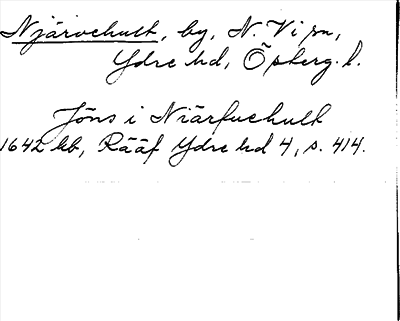 Njärvehult, by, N. Vi sn,
Ydre hd, Östergötl.
Jöns i Niärfuehult
1642 kb, Rääf Ydre hd 4, s. 414.